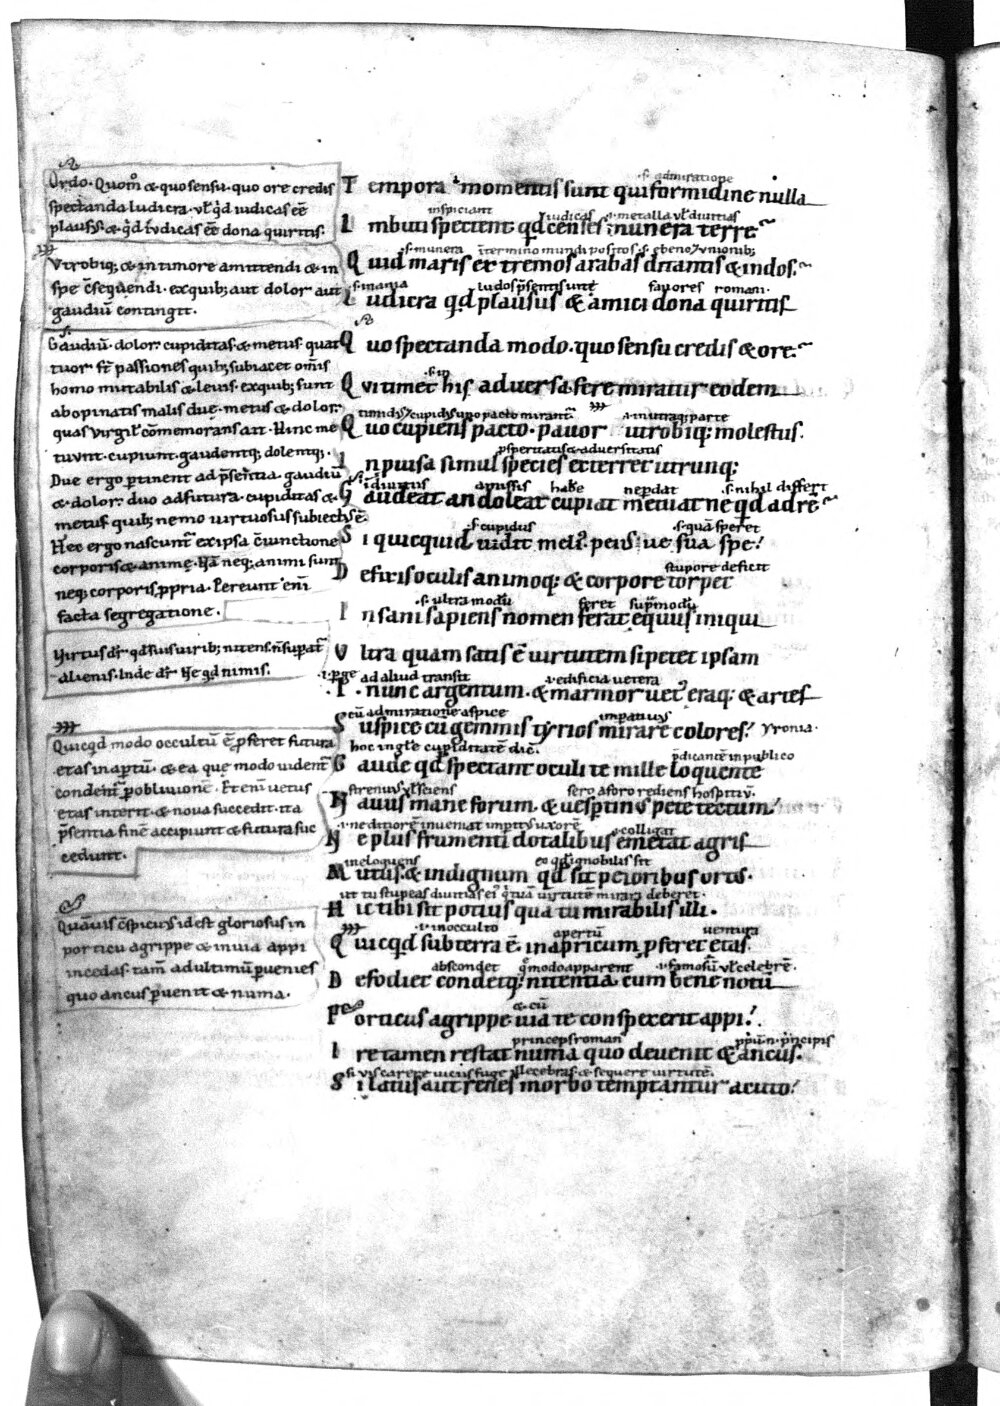 Ordo. Quom̊ & quo sensu. quo ore credis
spectanda ludicra. vł qd iudicas eē
plausus. & qd iudicas eē dona quiritis.
Vtrobiq; & in timore amittendi & in
spe c̄sequendi. ex quib; aut dolor aut
gaudiū contingit.
Gaudiū. dolor. cupiditas & metus. quat
tuor st̄ passiones quib; subiacet om̄is
homo mutabilis & leuis. ex quib; sunt
ab opinatis malis due. metus & dolor.
quas virgiľ cōmemorans ait. Hinc me
tuunt. cupiunt. gaudentq; dolentq;.
Due ergo ꝑtinent ad p̄sentia. gaudiū
& dolor. duo ad futura. cupiditas &
metus. quib; nemo uirtuosus subiect; ē.
Hec ergo nascunt̄ ex ipsa c̄iunctione
corporis & anime. Nā neq; animi sunt
neq; corporis ꝓpria. Pereunt eni
facta segregatione.
Virtus dr̄ qd suis uirib; nitens. n̄ suꝑat̄
alienis. Inde dr̄ he qd nimis.
Quicqd modo occultū ē ꝓferet futura
etas in aꝑtū. & ea que modo uident̄
condent̄ ꝑ obliuionē. Etenī uetus
etas interit. & noua succedit. ita
p̄sentia finē accipiunt & futura suc
cedunt.
Quāuis c̄spicuus id est gloriosus in
porticu agrippe & in uia appi
incedas. tam̄ ad ultimū ꝑuenies
quo ancus ꝑuenit & numa.
.s. admiratione
Tempora momentis sunt qui formidine nulla
inspiciant iudicas .i. metalla vł diuitias
Imbuti spectent. qd censes munera terre
.s. munera in termino mundi positos .s. ebeno & unionib;
Quid maris extremos arabas ditantis & indos.
.s. inania ludos p̄sentis uite fauores romani.
Ludicra qd plausus & amici dona quiritis
Quo spectanda modo. quo sensu credis & ore.
Qui timet his aduersa. fere miratur eodem
timidus & cupidus uno pacto mirant̄ .i. in utraq; parte
Quo cupiens pacto. pauor utrobiq; molestus.
ꝓsperitatis & aduersitatis
Inprouisa simul species exterret utrunq;
.s. diuitiis amissis habere ne perdat .s. nihil differt
Gaudeat an doleat cupiat metuat ne qd ad rē
.s. cupidus .s. quā speret
Si quicquid uidit meľ peiusue sua spe.
stupore deficit
Defixis oculis animoq; & corpore torpet
.s. ultra modū feret supra modū
Insani sapiens nomen ferat equus iniqui
Vltra quam satis ē uirtutem si petet ipsam
.i. perge ad aliud transit .i. edificia uetera
.I. nunc argentum. & marmor uet; eraq; & artes
cū admiratione aspice impatiens
Suspice cū gemmis tyrios mirare colores. Yronia.
hoc in gľe cupiditatē dic̄. p̄dicantē in publico
Gaude qd spectant oculi te mille loquente
strenuus vł sciens sero a foro rediens hospitiū.
Nauus mane forum. & uesꝑtinus pete tectum.
.i. ne ditiorē inueniat in ꝑtis uxorē .i. colligat
Ne plus frumenti dotalibus emetat agris
ineloquens eo qd ignobilis sit
Mutus. & indignum qd sit peioribus ortus.
ut tu stupeas diuitias ei; qui tuā uirtutē mirari deberet.
Hic tibi sit potius qua tu mirabilis illi.
.i. in occulto apertū uentura
Quicqd sub terra ē. in apricum ꝓferet etas.
abscondet que modo apparent .i. famosū vł celebrē.
Defodiet condetq; nitentia. cum bene notū
& cū
Porticus agrippe uia te conspexerit appi.
princeps roman̄ ꝓpriū n̄ principis
Ire tamen restat numa quo deuenit & ancus.
si uis carere uiciis fuge illecebras & sequere uirtutē.
Si latus aut renes morbo temptantur acuto.